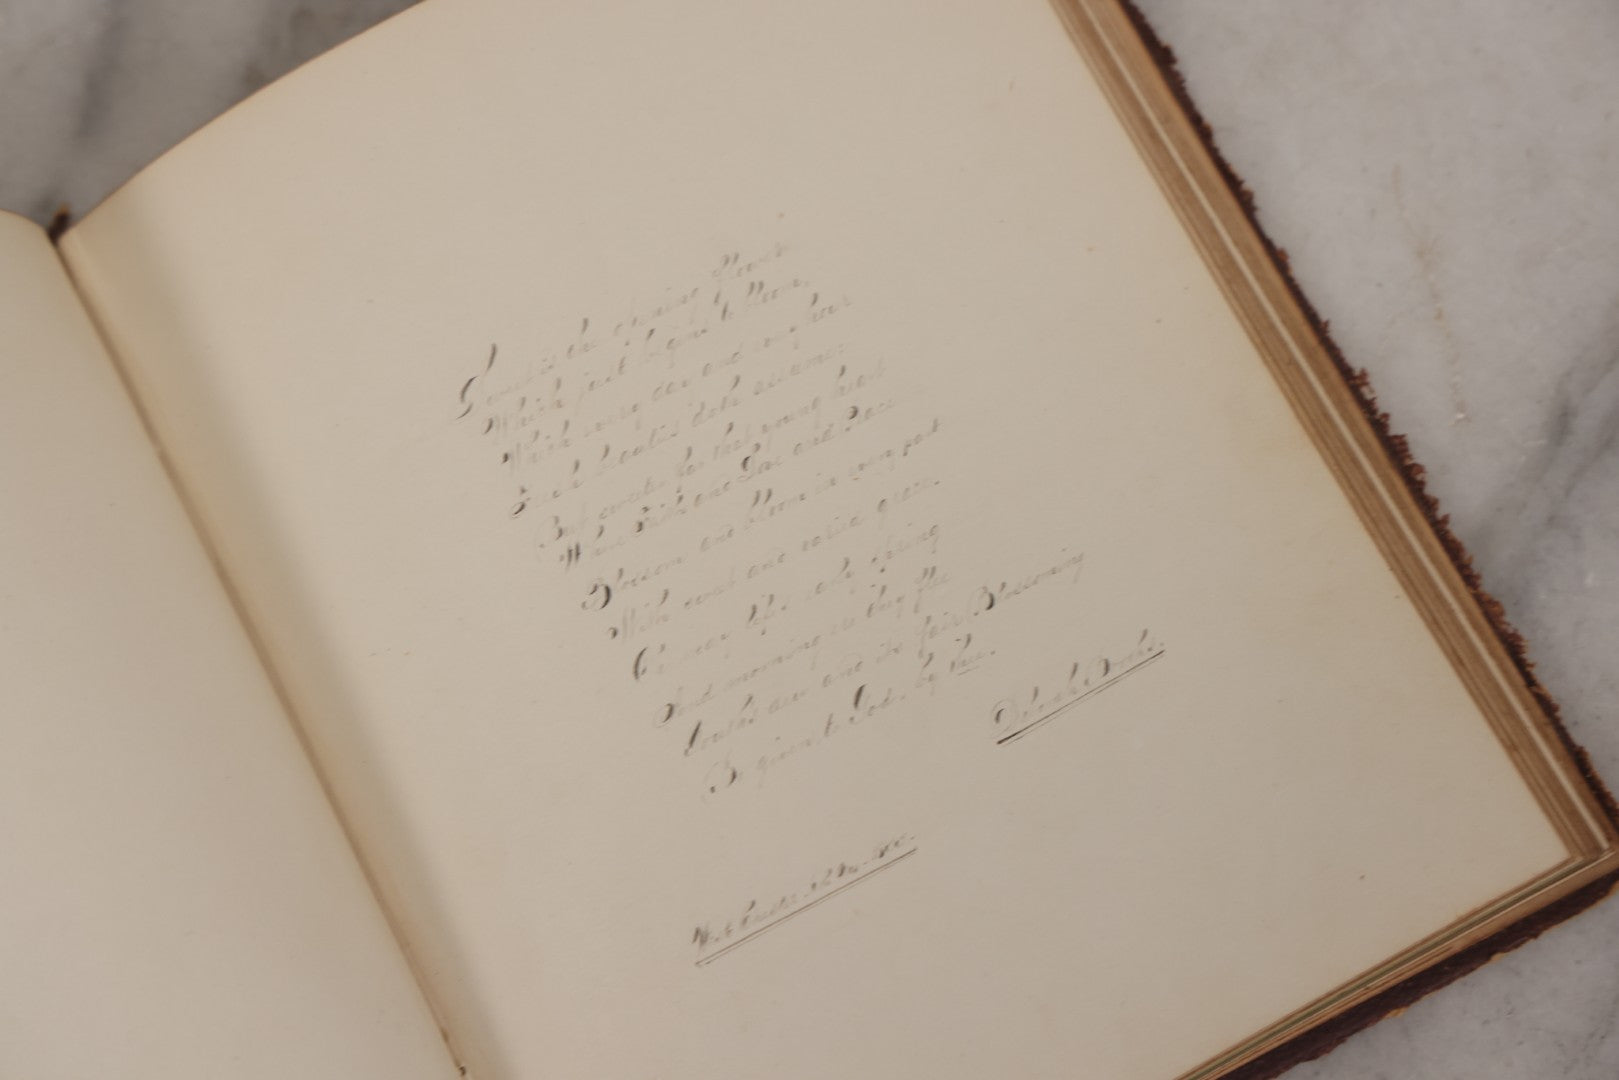 Sweet is the opening flower
Which just begins to bloom,
Which every day and every hour
Fresh beauties doth assume:
But sweeter far that young heart
Where Faith and Love and Peace
Blossom and bloom in every part
With sweet and varied grace.
O may life's early spring
And morning ere they flee
Youth's and its fair Blossoming
Be given to God, by thee.
Deborah
West Chester